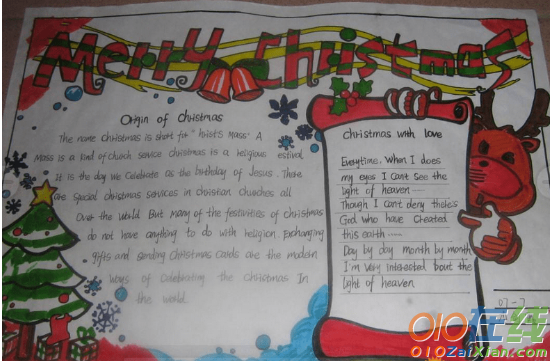 Merry Christmas
Origin of christmas
The name christmas is short for "hist's Mass" A
Mass is a kind of church service christmas is a religious estival
It is the day We Celebrate as the birthday of Jesus. There
are special christmas services in christian churches all
Over the World But many of the festivities of christmas
do not have anything to do with religion. Exchanging
gifts and sending Christmas cards are the modern
ways of Celebrating the Christmas In
the world.
christmas with love
Everytime. When I does
my eyes I can't see the
light of heaven
Though I can't deny there's
God who have Created
this earth
Day by day month by month
I'm very interested 'bout the
light of heaven
07-7
010在线
010ZaiXian.com